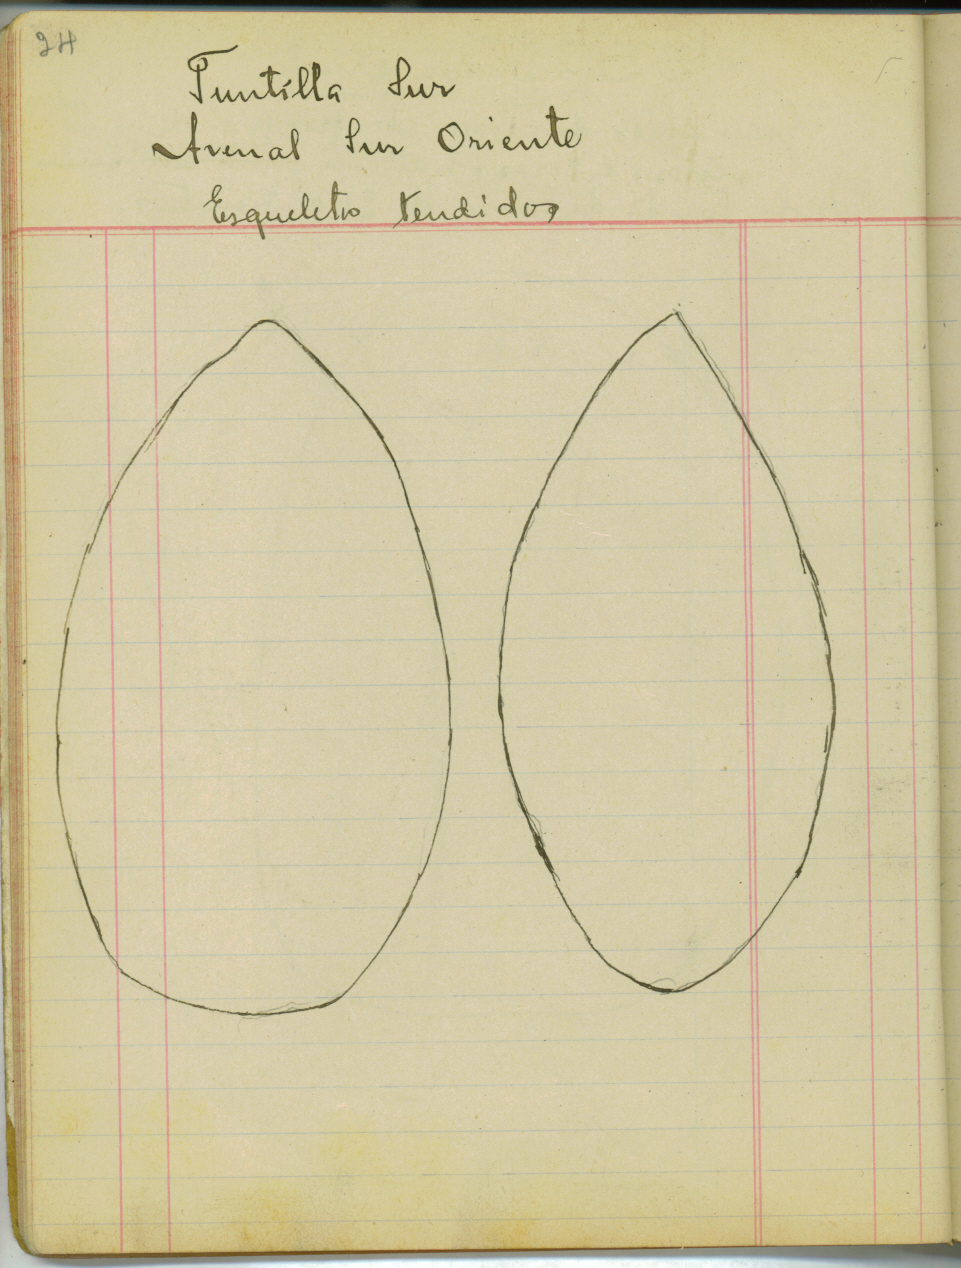 24
Puntilla Sur
Arenal Sur Oriente
Esqueleto tendidos